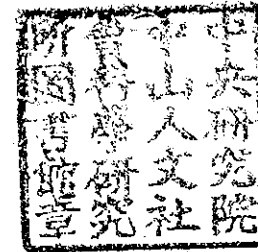 中央研究院
中山人文社
會科學研究
所圖書館章